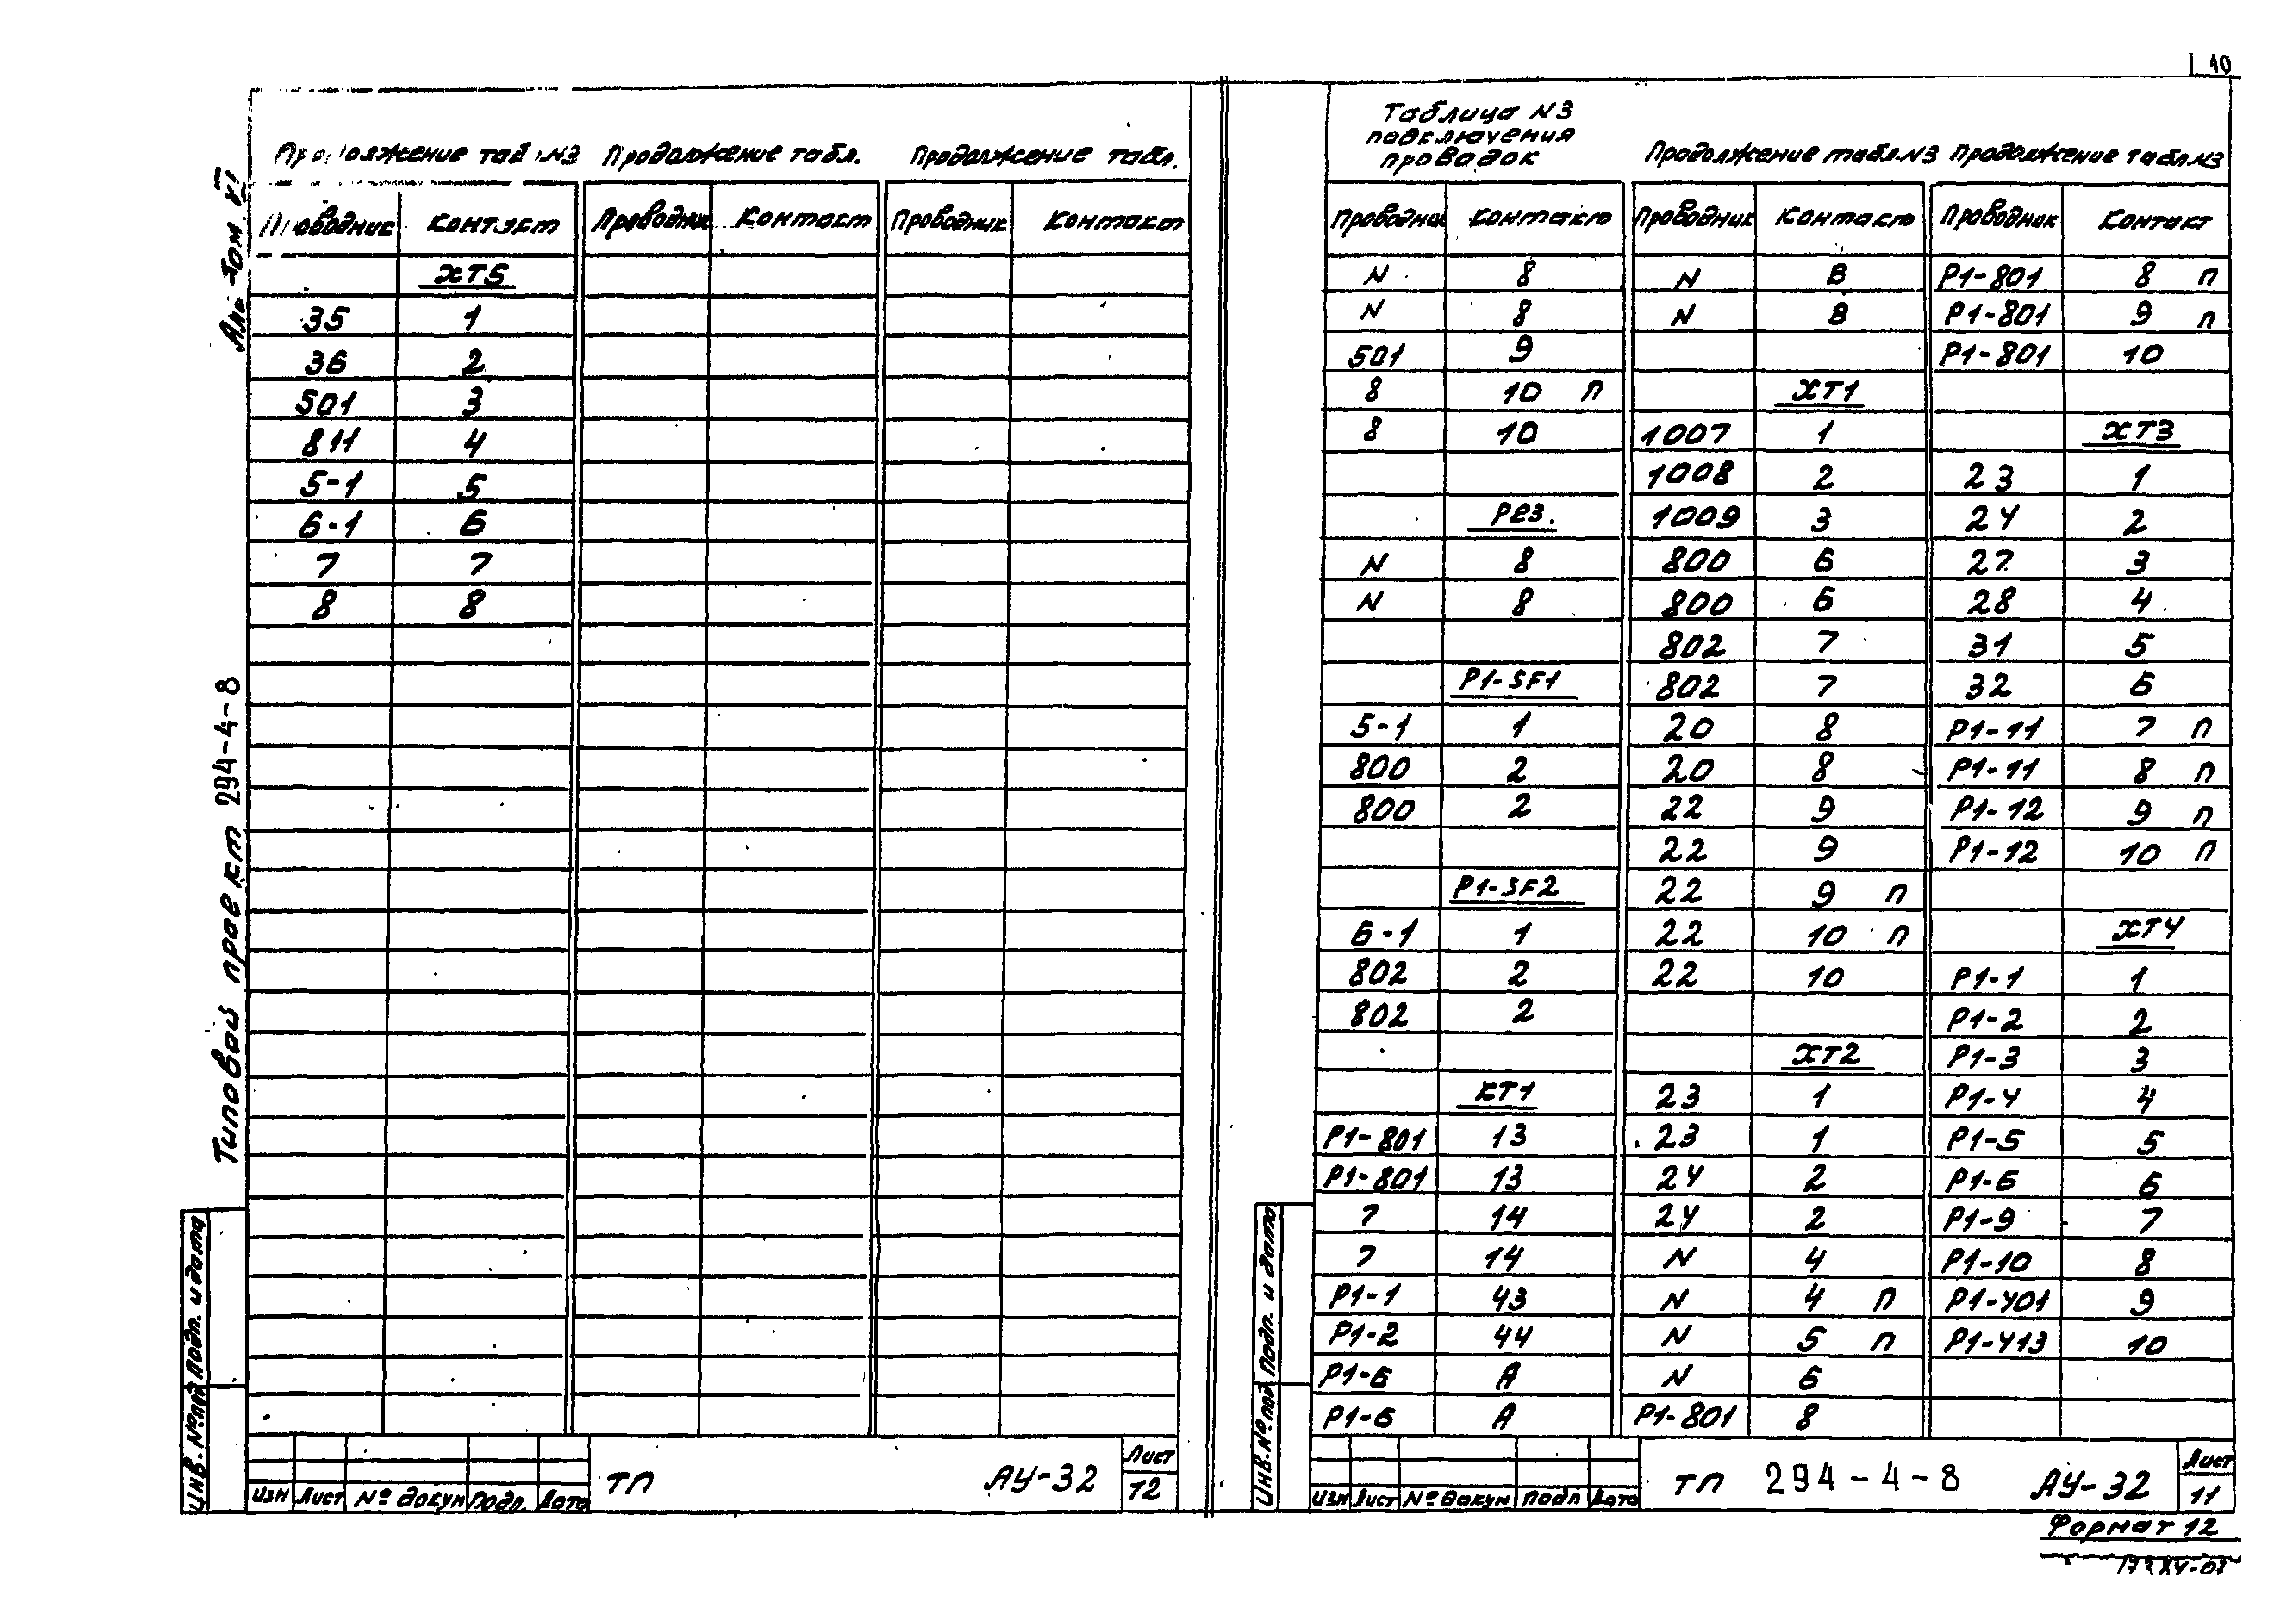 10
Продолжение табл. №3 Продолжение табл. Продолжение табл.
Проводник Контакт Проводник Контакт Проводник Контакт
ХТ5
35 1
36 2
501 3
811 4
5-1 5
6-1 6
7 7
8 8
Типовой проект 294-4-8
Инв. № под Подп. и дата
Изм Лист № докум Подп. Дата
ТП АУ-32 Лист 12
Таблица №3
подключения
проводок
Проводник Контакт
N 8
N 8
501 9
8 10 П
8 10
Рез.
N 8
N 8
Р1-SF1
5-1 1
800 2
800 2
Р1-SF2
6-1 1
802 2
802 2
КТ1
Р1-801 13
Р1-801 13
7 14
7 14
Р1-1 43
Р1-2 44
Р1-6 А
Р1-6 А
Продолжение табл №3
Проводник Контакт
N В
N В
ХТ1
1007 1
1008 2
1009 3
800 6
800 6
802 7
802 7
20 8
20 8
22 9
22 9
22 9 П
22 10 П
22 10
ХТ2
23 1
23 1
24 2
24 2
N 4
N 4 П
N 5 П
N 6
Р1-801 8
Продолжение табл №3
Проводник Контакт
Р1-801 8 П
Р1-801 9 П
Р1-801 10
ХТ3
23 1
24 2
27 3
28 4
31 5
32 6
Р1-11 7 П
Р1-11 8 П
Р1-12 9 П
Р1-12 10 П
ХТ4
Р1-1 1
Р1-2 2
Р1-3 3
Р1-4 4
Р1-5 5
Р1-6 6
Р1-9 7
Р1-10 8
Р1-401 9
Р1-413 10
Инв. № под Подп. и дата
Изм Лист № докум Подп Дата
ТП 294-4-8 АУ-32 Лист 11
Формат 12